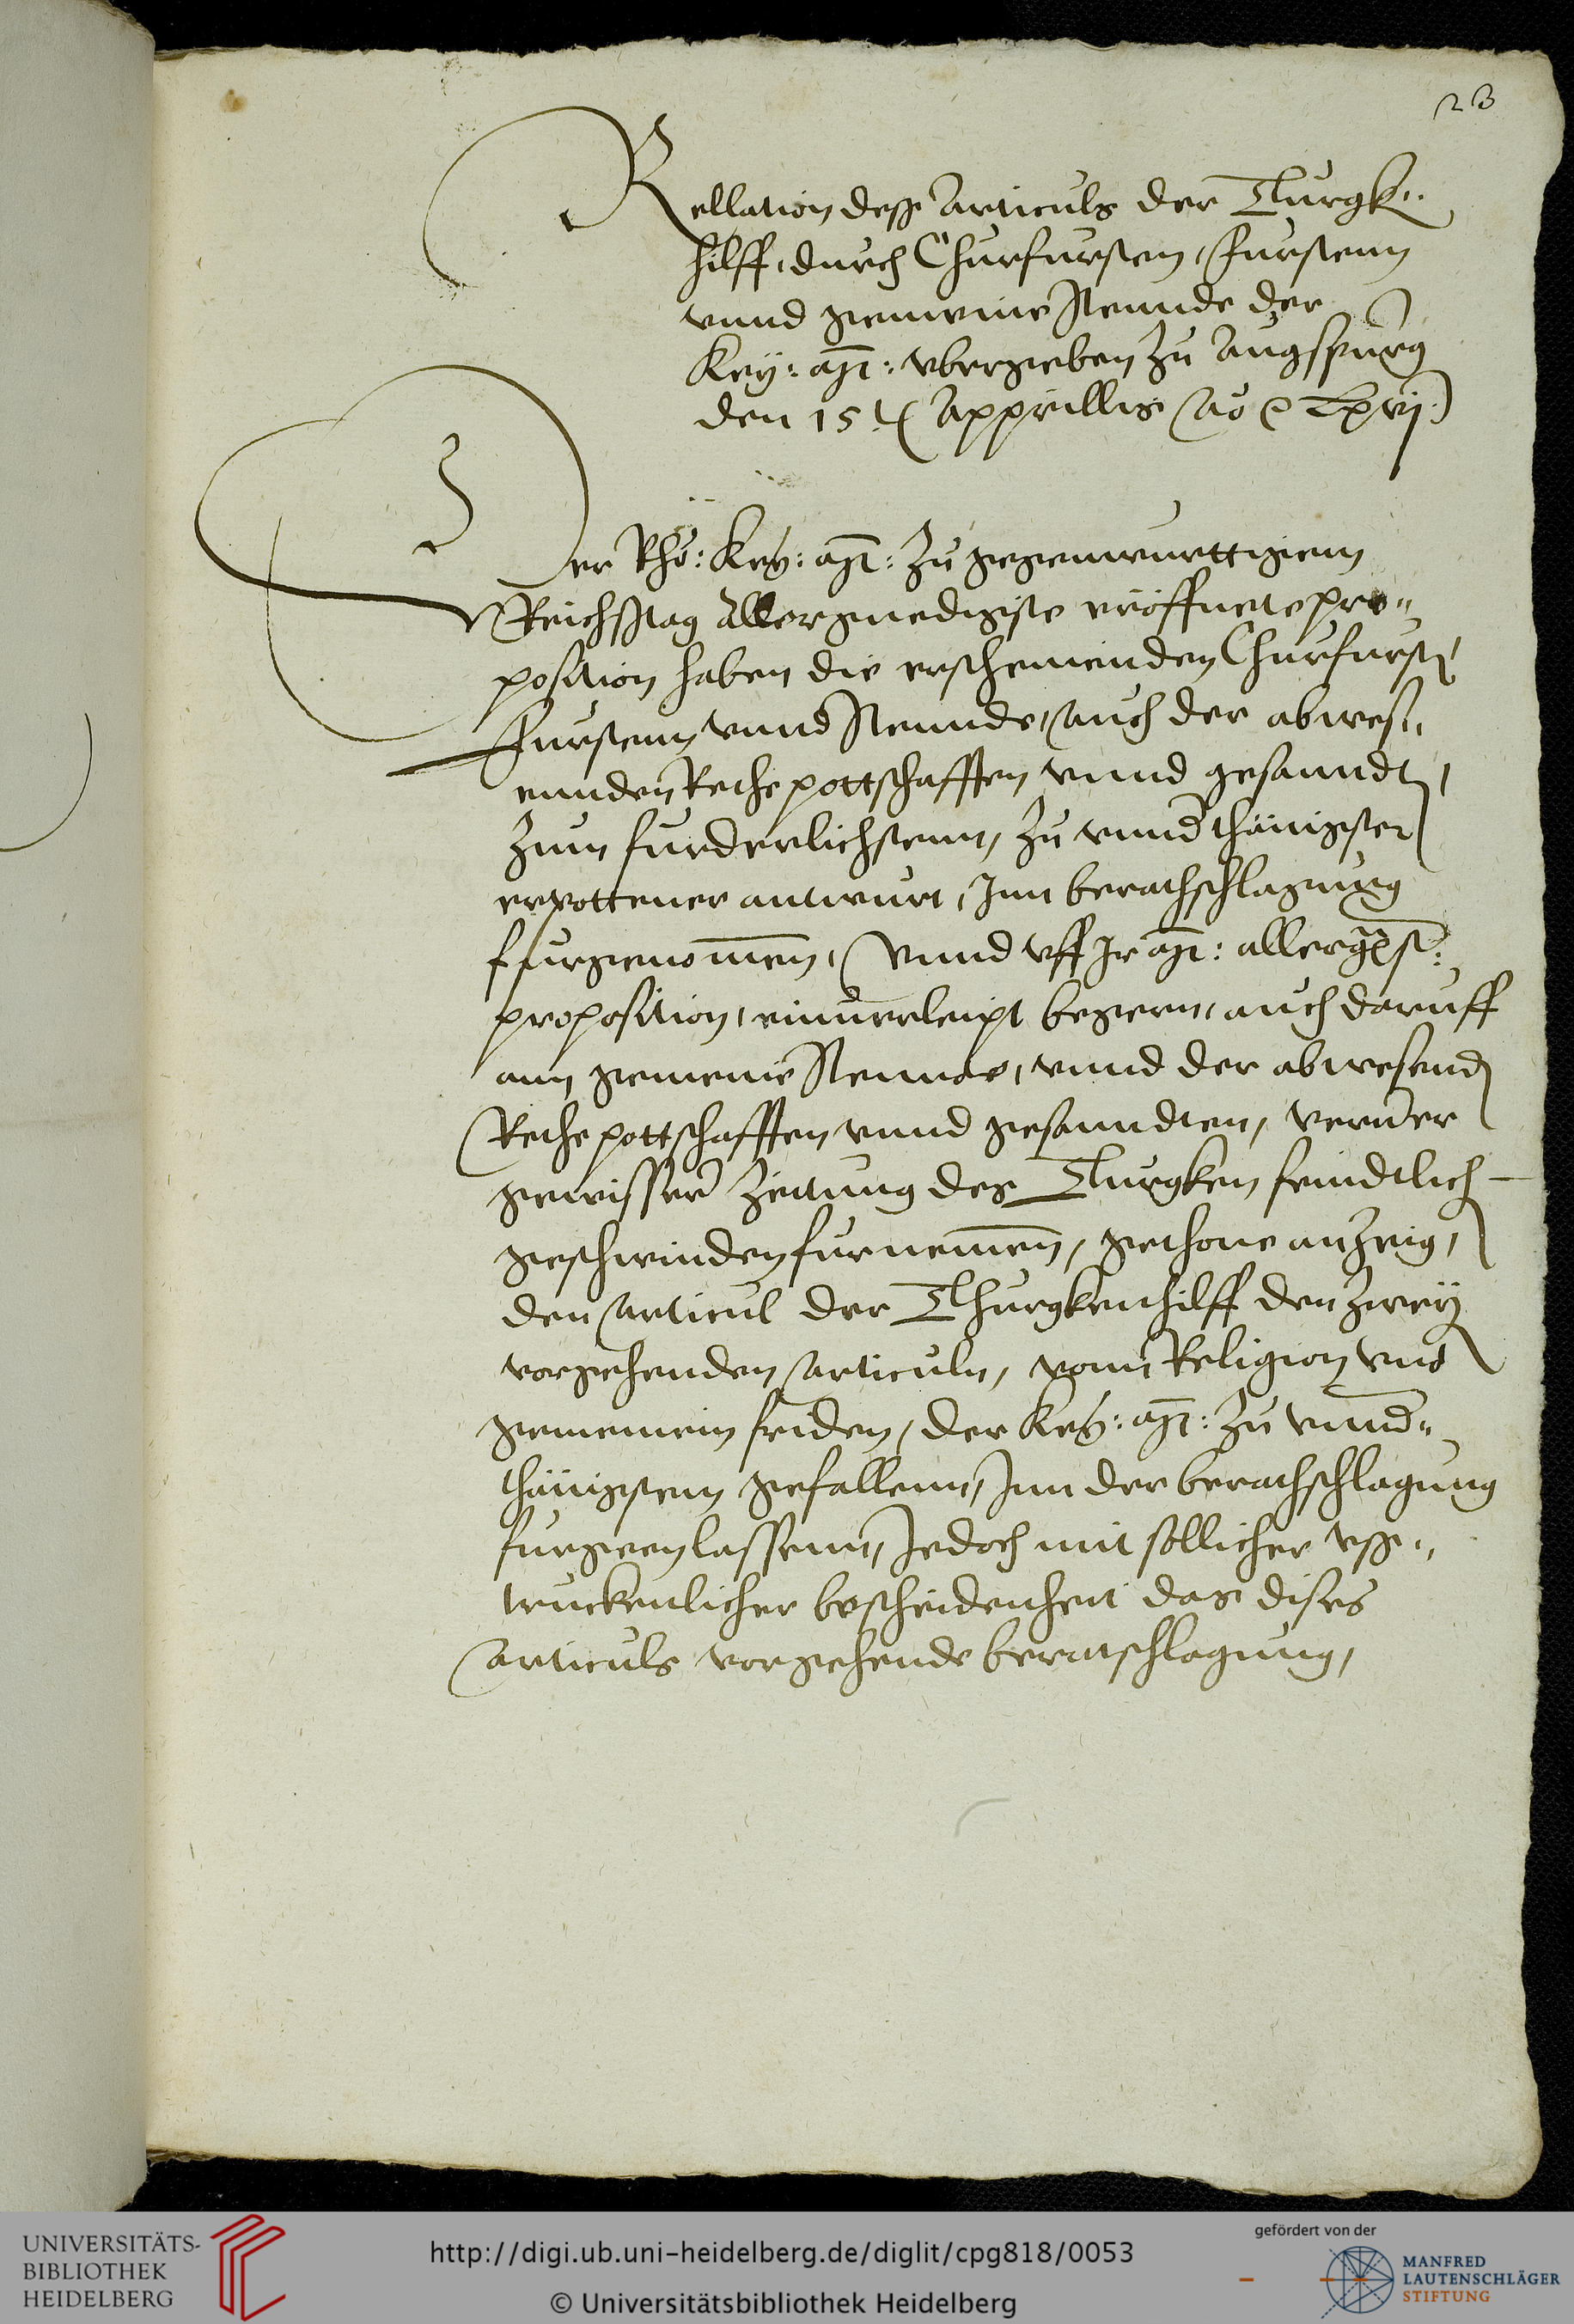 23
Rellation dess Articuls der Turgk„
hilff, durch Churfursten, Furstenn
vnnd gemeine Stennde der
Key: Mt: vbergeben zu Augspurg
den 15t Apprillis Ao Lxvj
Der Rho: Key: Mt: zu gegenwurttigem
Reichsstag allergnedigste eröffnete pro„
position haben die erscheinenden Churfurst
Furstenn vnnd Stennde, auch der abwes„
ennden Rethe pottschafften vnnd gesanndt,
zum furderlichstenn, zu vnnderthänigster
erpottener antwurt, Inn berathschlagung
furgenommen, Vnnd vff Ir Mt: allergst:
proposition, einuerleipt begern, auch daruff
ann gemeine Stennde, vnnd der abwesend
Rethe pottschafften vnnd gesanndten, verner
gewisser Zeittung des Turgken feindtlich
geschwinden furnemen, gethone anzeig,
den Articul der Thurgkenhilff den zweÿ
vorgehenden Articuln, vom Religion vnd
gemeinem friden, der Key: Mt: zu vnnder„
thänigstem gefallenn, Inn der berathschlagung
furgeen lassenn, Jedoch mit sollicher vss„
truckenlicher bescheidenheit das dises
Articuls vorgehende beratschlagung,
UNIVERSITÄTS-
BIBLIOTHEK
HEIDELBERG
http://digi.ub.uni-heidelberg.de/diglit/cpg818/0053
© Universitätsbibliothek Heidelberg
gefördert von der
MANFRED
LAUTENSCHLÄGER
STIFTUNG